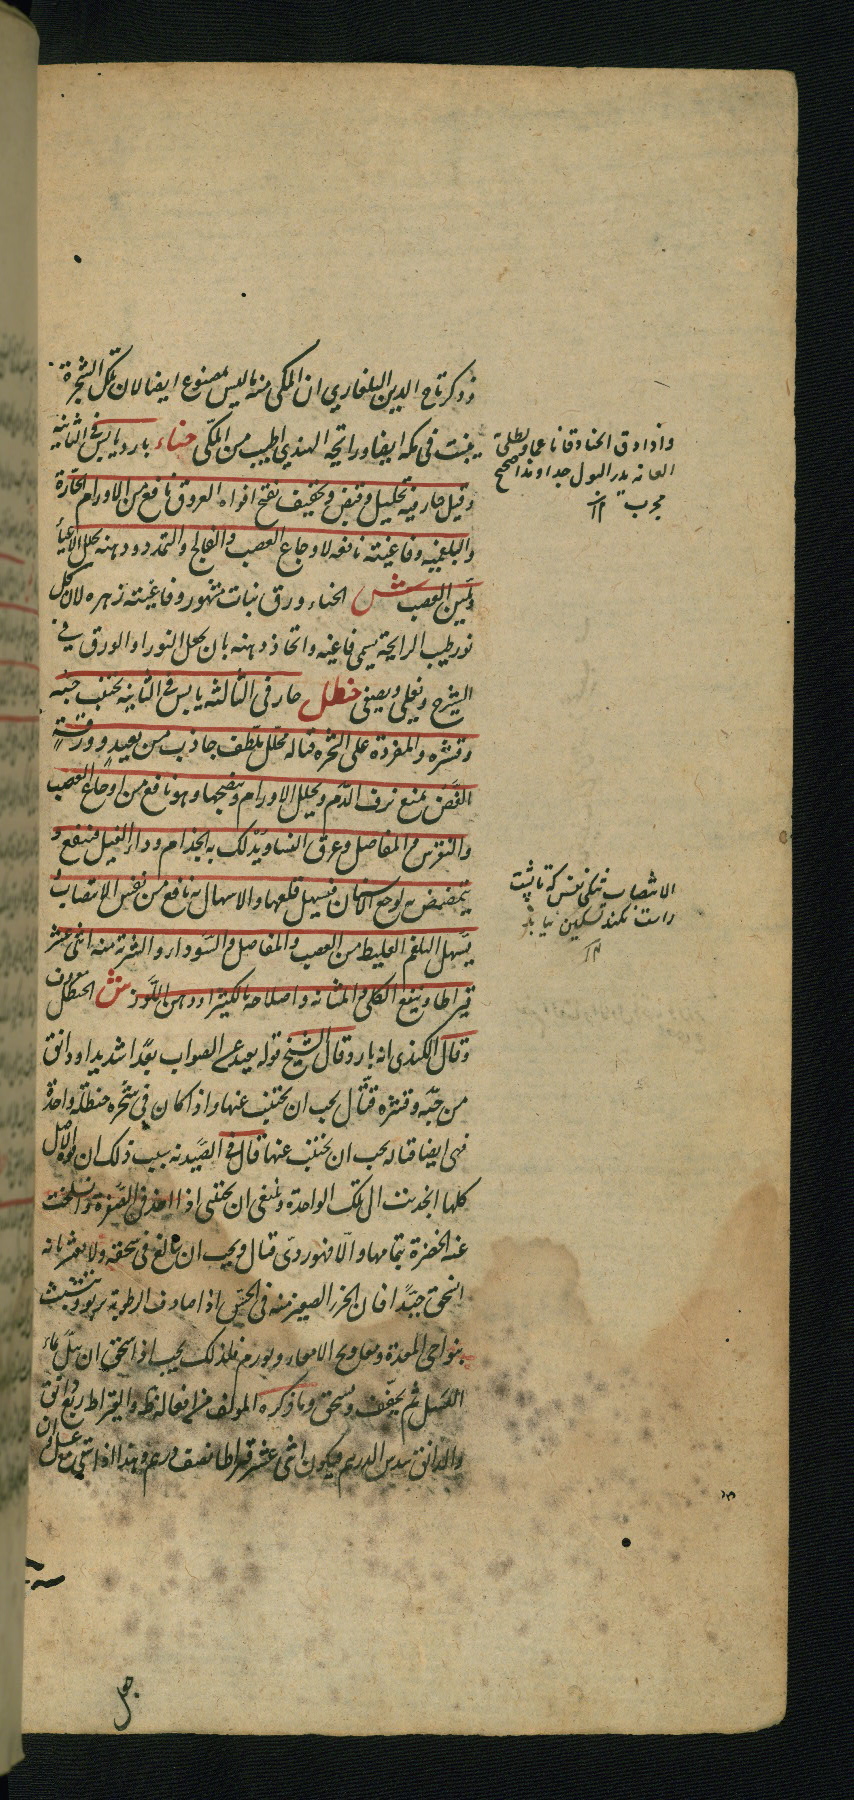 وذكر تاج الدين البلغاري ان المكى منه ليس بمصنوع ايضا لان تلك الشجرة
ينبت فى مكه ايضا ورائحة الهندي اطيب من المكى حناء بارد يابس فى الثانية
وقيل حار فيه تحليل وقبض وتجفيف تفتح افواه العروق نافع من الاورام الحارة
والبلغمية وفاغيته نافعه لاوجاع العصب والفالج والتمدد ودهنه يحلل الاعياء
ويلين العصب ش الحناء ورق نبات مشهور وفاغيته زهره لان كل
نور طيب الرايحة يسمى فاغيه واتخاذ دهنه بان يجعل النور او الورق في
الشيرج ويغلى ويصفى حنظل حار فى الثالثه يابس فى الثانيه يجتنب حبه
وقشره والمفردة على الشجره قتاله محلل ملطف جاذب من بعيد وورقه
الغض يمنع نزف الدم ويحلل الاورام وينضجها وهو نافع من اوجاع العصب
والنقرس والمفاصل وعرق النسا ويدلك به الجذام وداء الفيل فينفع و
يتمضمض به لوجع الاسنان فيسهل قلعها والاسهال به نافع من نفس الانتصاب و
يسهل البلغم الغليظ من العصب والمفاصل والسوداء والشربة منه اثنى عشر
قيراطا وينفع الكلى والمثانه واصلاحه بالكثيرا ودهن اللوز ش الحنظل معروف
وقال الكندى انه بارد وقال الشيخ قوله بعيد عن الصواب بعدا شديدا ودانق
من حبه وقشره قتال يجب ان يجتنب عنها واذا كان فى شجره حنظلة واحدة
فهى ايضا قتاله يجب ان يجتنب عنها قال فى الصيدنه سبب ذلك ان قوة الاصل
كلها انجذبت الى تلك الواحدة وينبغى ان يجتنى اذا اخذ فى الصفرة وانسلخت
عنه الخضرة بتمامها والا فهو ردى قتال ويجب ان يبالغ فى سحقه ولا يغتر بانه
انسحق جيدا فان الجزء الصغير منه فى الحس اذا صادف الرطوبة يربو وتتشبث
بنواحى المعدة وتعاويج الامعاء ويورم فلذلك يجب اذا سحق ان يبل بماء
العسل ثم يجفف ويسحق وما ذكره المولف من افعاله ظ والقيراط ربع دانق
والدانق سدس الدرهم فيكون اثنى عشر قيراطا نصف درهم وهذا اذا سقى مع عسل وان
جعل
واذا دق الحنا دقا ناعما وطلى
العانه يدر البول جدا وهذا صحيح
مجرب ١٢
الانتصاب تنكى نفس كه تا پشت
راست نكند تسكين نيابد
١٢